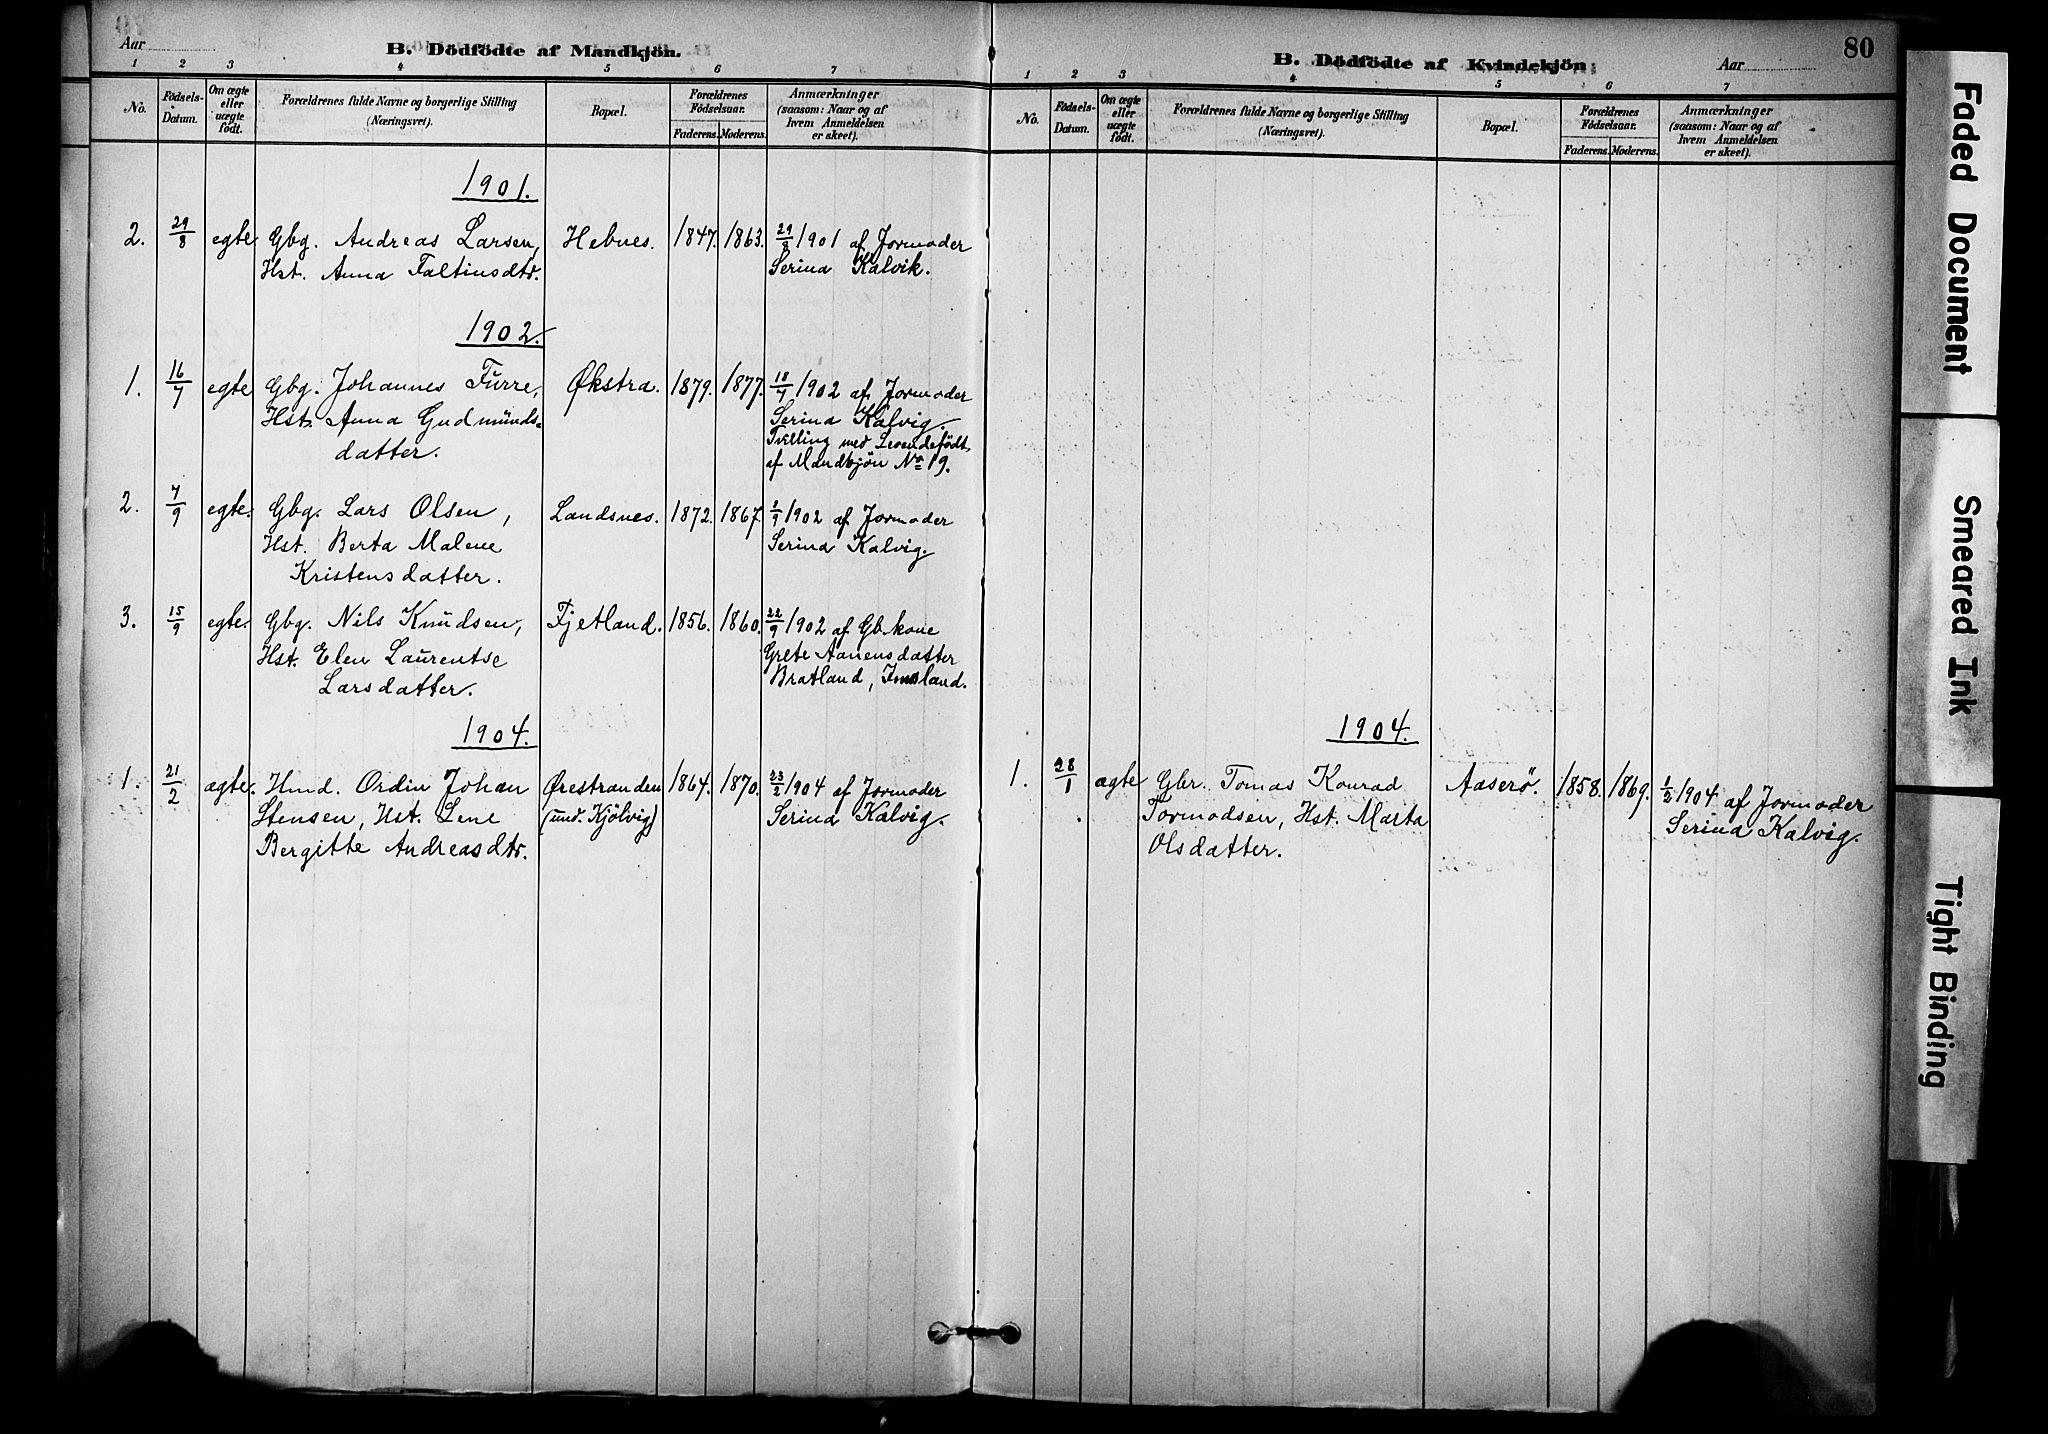 Aar
B. Dödfödte af Mandkjön.
1 2 3 4 5 6 7
No.
Födsels-
Datum.
Om ægte
eller
uægte
födt.
Forældrenes fulde Navne og borgerlige Stilling
(Næringsvei).
Bopæl.
Forældrenes
Födselsaar.
Faderens. Moderens.
Anmærkninger
(saasom: Naar og af
hvem Anmeldelsen
er skeet).
1901.
2. 29/8 egte Gbg. Andreas Larsen, Hebnes. 1847. 1863. 29/8 1901 af Jormoder
Hst. Anna Faltinsdtr. Serina Kalvik.
1902.
1. 16/7 egte Gbg. Johannes Furre, Økstra. 1879. 1877. 18/7 1902 af Jormoder
Hst. Anna Gudmunds- Serina Kalvig.
datter. Tvilling med Levendefödt
af Mandkjön No 19.
2. 7/9 egte. Gbg. Lars Olsen, Landsnes. 1872. 1867. 1902 af Jormoder
Hst. Berta Malene Serina Kalvig.
Kristensdatter.
3. 15/9 egte. Gbg. Nils Knudsen, Fjetland. 1856. 1860. 22/9 1902 af Gb.kone
Hst. Elen Laurentse Grete Aanensdatter
Larsdatter. Bratland, Imsland.
1904.
1. 21/2 ægte. Hmd. Ordin Johan Ørestranden 1864. 1870. 23/2 1904 af Jormoder
Stensen, Hst. Lene (und. Kjölvig) Serina Kalvig.
Bergitte Andreasdtr.
80
B. Dödfödte af Kvindekjön
Aar
1 2 3 4 5 6 7
No.
Födsels-
Datum.
Om ægte
eller
uægte
födt.
Forældrenes fulde Navne og borgerlige Stilling
(Næringsvei).
Bopæl.
Forældrenes
Födselsaar.
Faderens. Moderens.
Anmærkninger
(saasom: Naar og af
hvem Anmeldelsen
er skeet).
1904.
1. 28/1 ægte Gbr. Tomas Konrad Aaserö. 1858. 1869. 1/2 1904 af Jormoder
Tormodsen, Hst. Marta Serina Kalvig.
Olsdatter.
Faded Document
Smeared Ink
Tight Binding